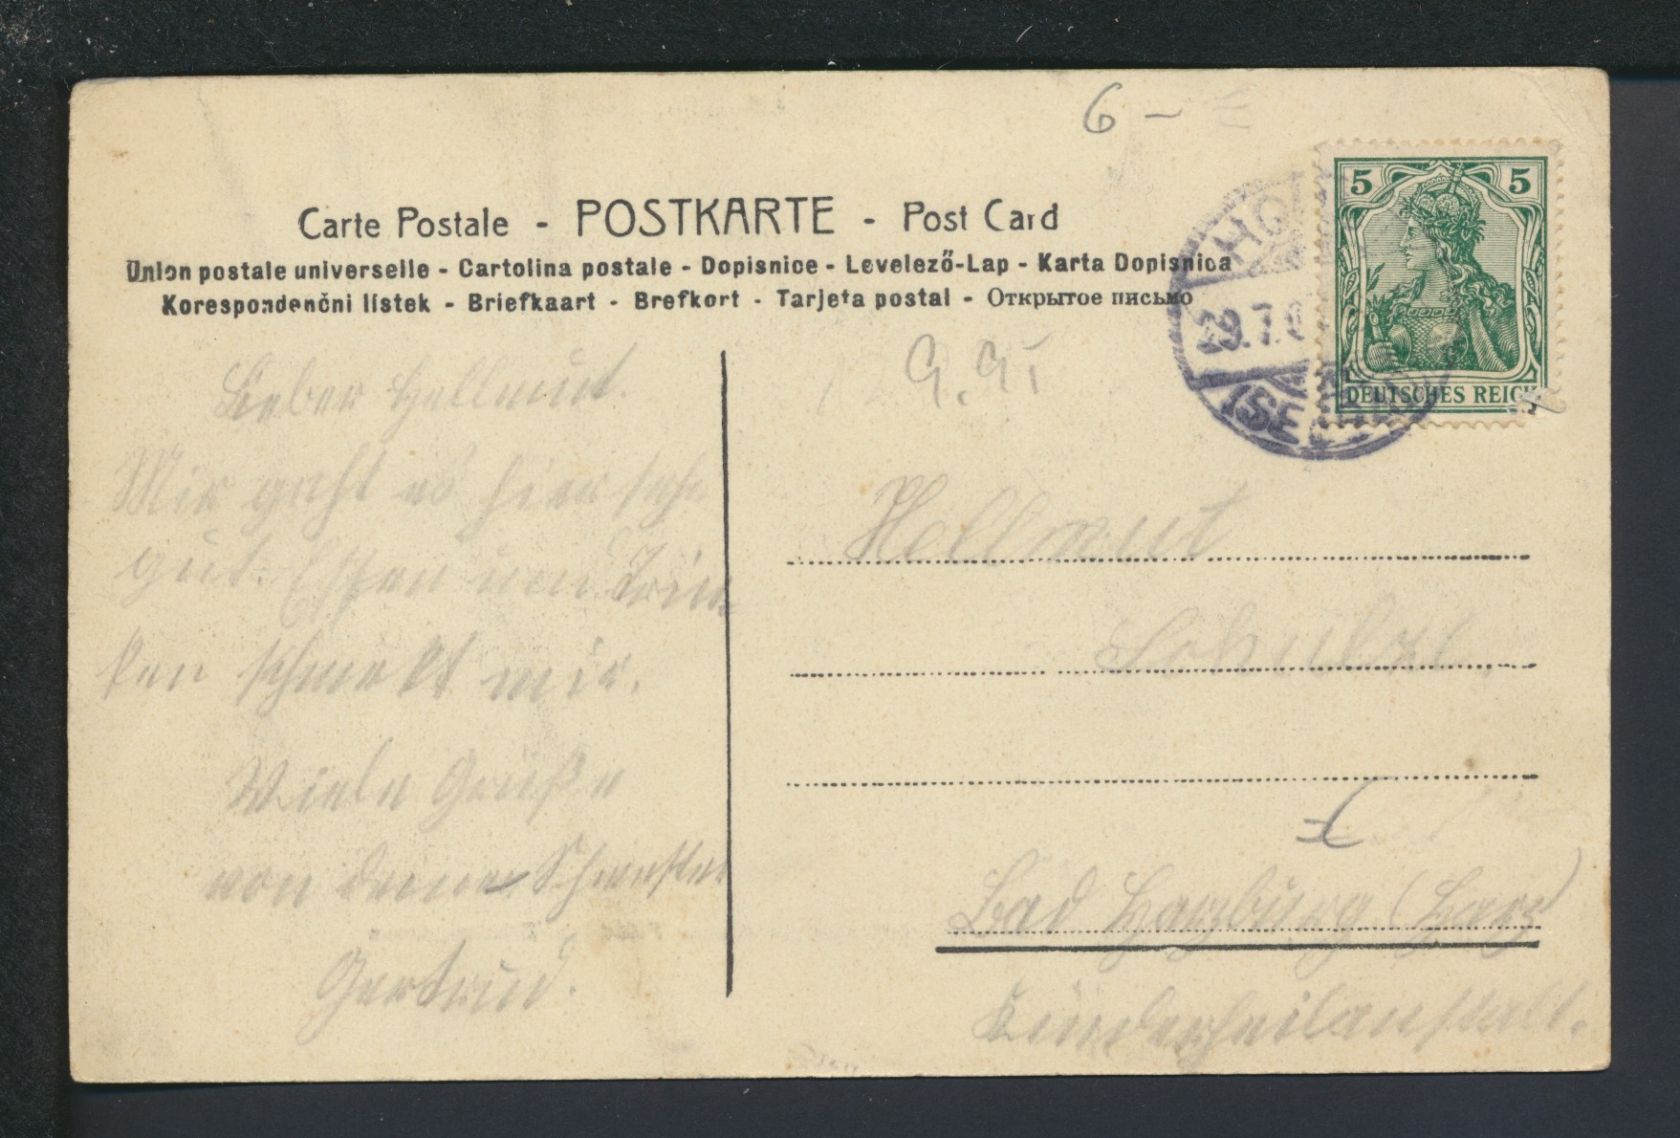 6 -
5 5
Carte Postale - POSTKARTE - Post Card
Union postale universelle - Cartolina postale - Dopisnice - Levelező-Lap - Karta Dopisnica
Korespondenční lístek - Briefkaart - Brefkort - Tarjeta postal - Открытое письмо
29.7.
DEUTSCHES REICH
Lieber Hellmut.
Mir geht es hier sehr
gut. Essen und Trin
ken schmekt mir.
Viele Grüße
von deiner Schwester
Gertrud.
9.95
Hellmut
Schultze
Bad Harzburg (Harz)
Kinderheilanstalt.